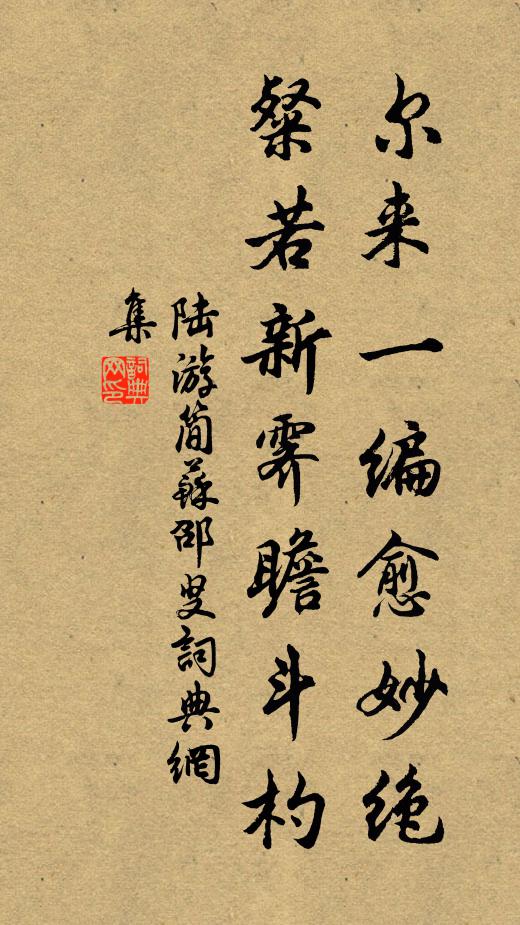 尔来一编愈妙绝
粲若新霁瞻斗杓
陆游简苏邵叟詞典網
集
詞典
网印